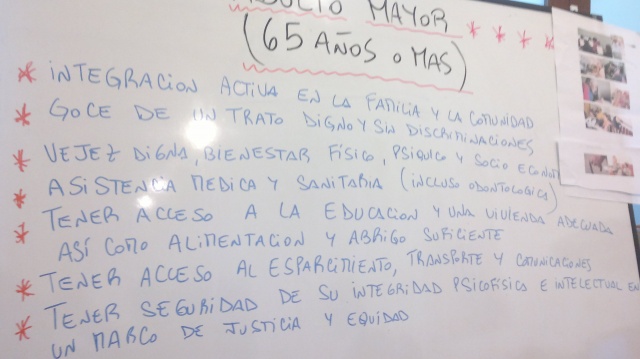 ADULTO MAYOR * * * *
(65 AÑOS o MAS)
* INTEGRACION ACTIVA EN LA FAMILIA Y LA COMUNIDAD
* GOCE DE UN TRATO DIGNO Y SIN DISCRIMINACIONES
* VEJEZ DIGNA, BIENESTAR FÍSICO, PSIQUICO Y SOCIO ECONOM
* ASISTENCIA MEDICA Y SANITARIA (INCLUSO ODONTOLOGICA)
* TENER ACCESO A LA EDUCACION Y UNA VIVIENDA ADECUADA
ASÍ COMO ALIMENTACION Y ABRIGO SUFICIENTE
* TENER ACCESO AL ESPARCIMIENTO, TRANSPORTE Y COMUNICACIONES
* TENER SEGURIDAD DE SU INTEGRIDAD PSICOFÍSICA E INTELECTUAL EN
UN MARCO DE JUSTICIA Y EQUIDAD